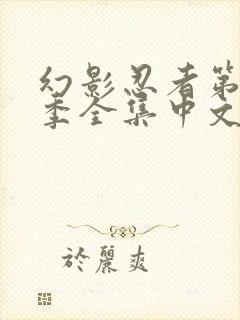 幻影忍者第
季全集中文
於麗爽